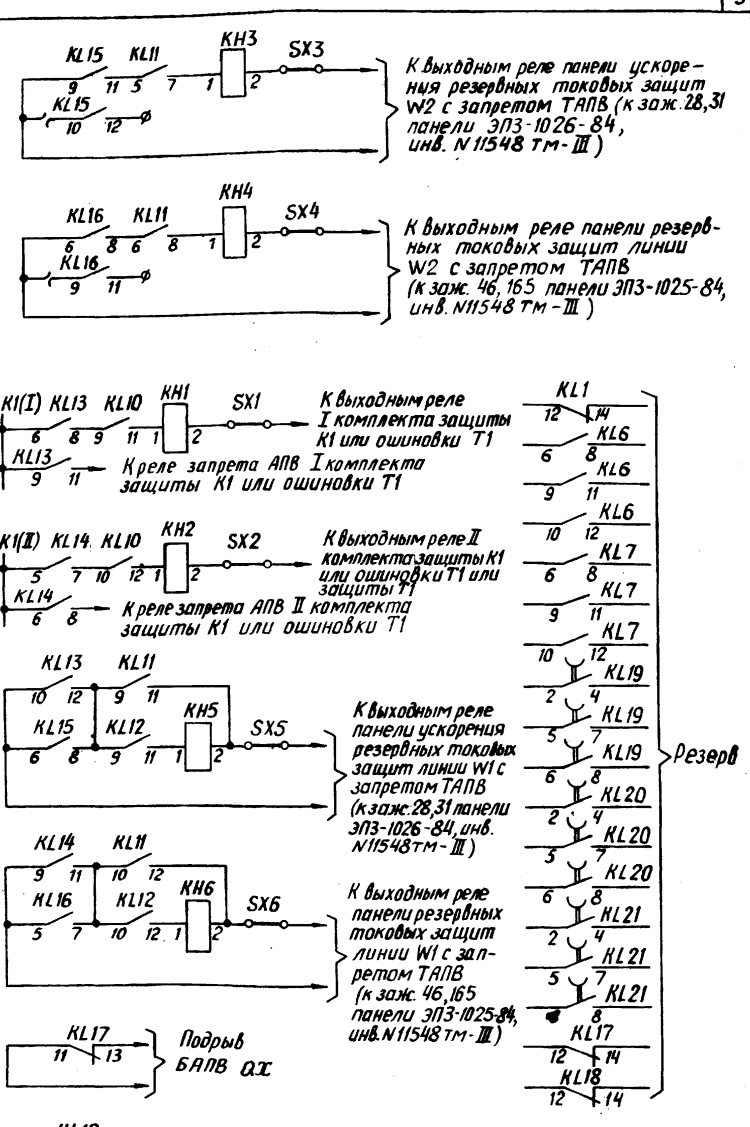 KH3
KL15 KL11 SX3
9 11 5 7 1 2
KL15
10 12
К выходным реле панели ускоре-
ния резервных токовых защит
W2 с запретом ТАПВ (к заж. 28,31
панели ЭПЗ-1026-84,
инв. N 11548 тм-III)
KH4
KL16 KL11 SX4
6 8 6 8 1 2
KL16
9 11
К выходным реле панели резерв-
ных токовых защит линии
W2 с запретом ТАПВ
(к заж. 46, 165 панели ЭПЗ-1025-84,
инв. N11548 тм-III)
KH1
K1(I) KL13 KL10 SX1
6 8 9 11 1 2
К выходным реле
I комплекта защиты
К1 или ошиновки Т1
KL13
9 11
К реле запрета АПВ I комплекта
защиты К1 или ошиновки Т1
KH2
K1(II) KL14 KL10 SX2
5 7 10 12 1 2
К выходным реле II
комплекта защиты К1
или ошиновки Т1 или
защиты Т1
KL14
6 8
К реле запрета АПВ II комплекта
защиты К1 или ошиновки Т1
KL13 KL11
10 12 9 11
KH5
KL15 KL12 SX5
6 8 9 11 1 2
К выходным реле
панели ускорения
резервных токовых
защит линии W1 с
запретом ТАПВ
(к заж. 28,31 панели
ЭПЗ-1026-84, инв.
N11548тм-III)
KL14 KL11
9 11 10 12
KH6
KL16 KL12 SX6
5 7 10 12 1 2
К выходным реле
панели резервных
токовых защит
линии W1 с зап-
ретом ТАПВ
(к заж. 46,165
панели ЭПЗ-1025-84,
инв. N11548 тм-III)
KL17
11 13
Подрыв
БАПВ ОХ
KL1
12 14
KL6
6 8
KL6
9 11
KL6
10 12
KL7
6 8
KL7
9 11
KL7
10 12
KL19
2 4
KL19
5 7
KL19
6 8
KL20
2 4
KL20
5 7
KL20
6 8
KL21
2 4
KL21
5 7
KL21
8
KL17
12 14
KL18
12 14
Резерв